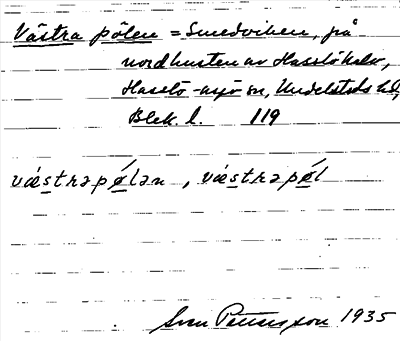 Västra pölen = Smedviken, på
nordkusten av Hasslö halv,
Hasslö
Blek. l. 119
væstrəpølən, væstrəpøl
Sven Pettersson 1935